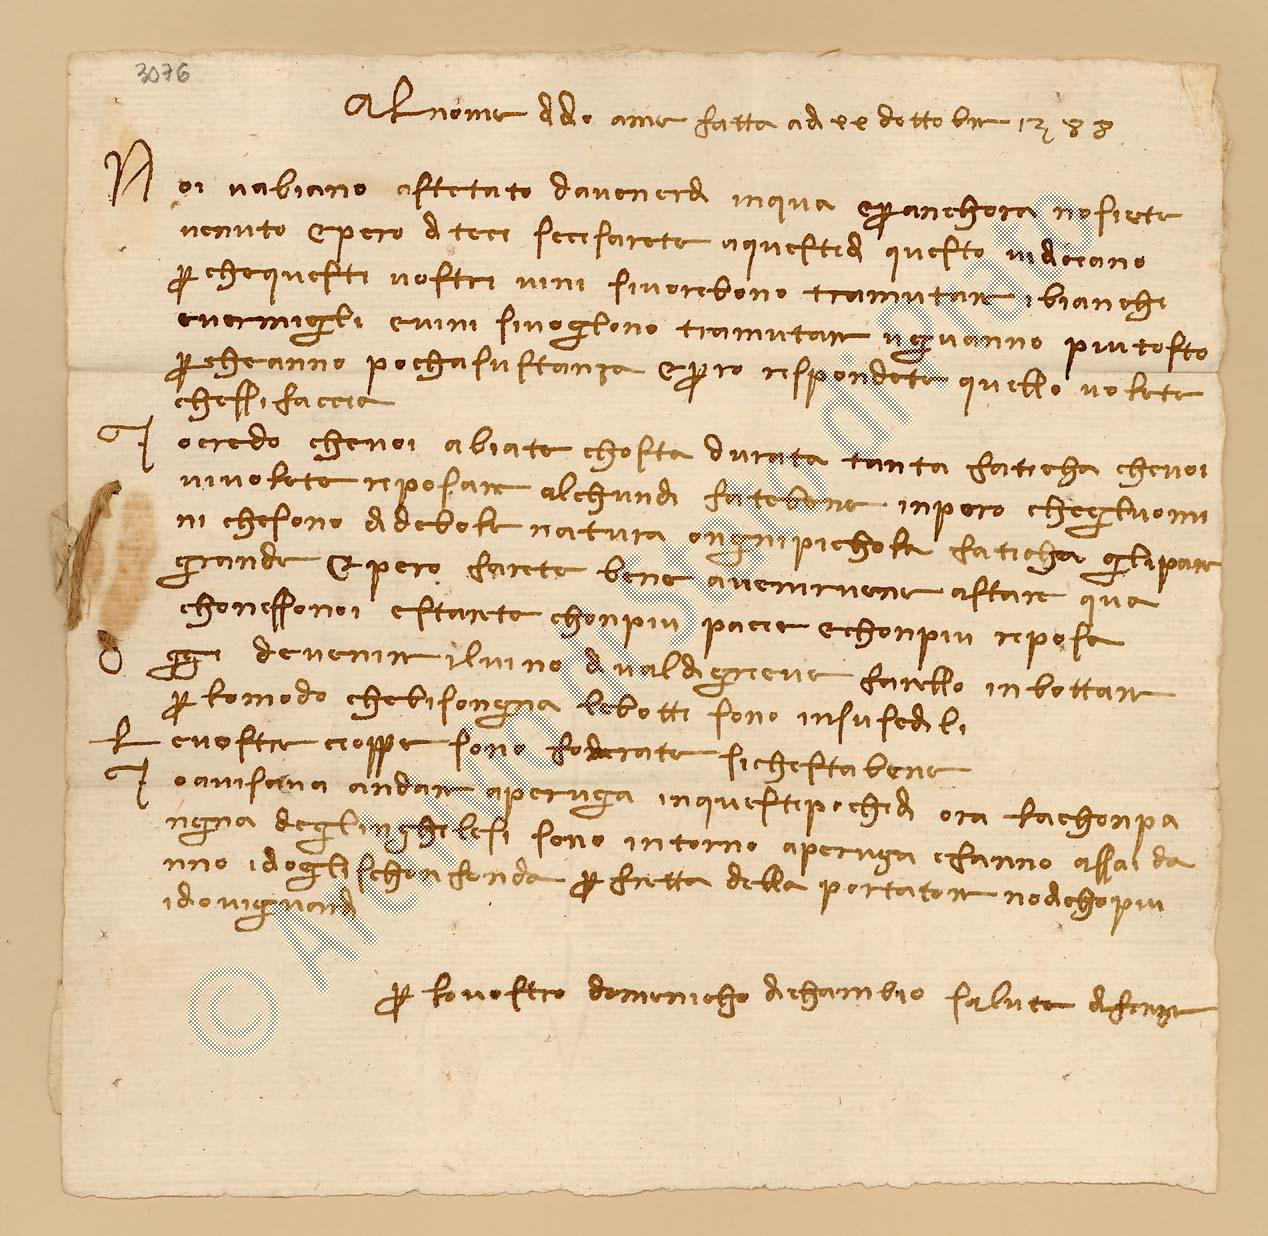 3076
Al nome di dio ame fatta adi 22 dottobre 1388
Noi vabiano aspetato da venerdi in qua e per anchora no siete
venuto e pero diteci se ci sarete a questi di questo vi diciano
perche questi vostri vini si vorebono tramutare i bianchi
e vermigli e vini si voglono tramutare uguanno piu tosto
perche anno pocha sustanza e pero respondete quello volete
chessi faccia
Io credo che voi abiate chosta durata tanta faticha che voi
vi volete riposare alchundi fate bene inpero che gluomi
ni che sono di debole natura ongni pichola faticha gli pare
grande e pero farete bene a venirvene a stare qua
chonesso noi e starete chon piu pacie e chon piu riposo
Oggi de venire il vino di valdigrieve farello inbottare
per lo modo che bisongna le botti sono in su sedili
Le vostre cioppe sono foderate si che sta bene
Io avisava andare a perugia in questi pochi di ora la chonpa
ngna deglinghilesi sono intorno a perugia e fanno assai da
nno idio gli schonfonda per fretta della portatore no dicho piu
idio vi guardi
per lo vostro domenicho di chambio salute di firenze
© Archivio di Stato di Prato